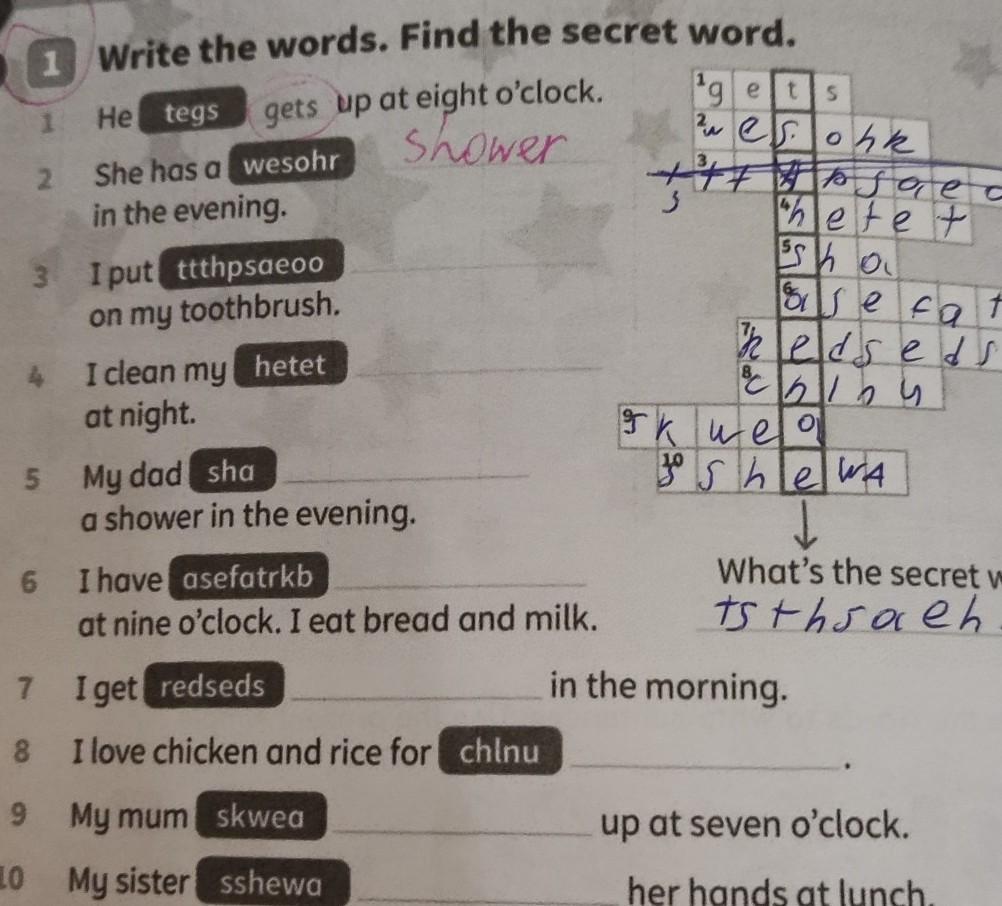 1 Write the words. Find the secret word.
1 He tegs gets up at eight o'clock.
2 She has a wesohr shower
in the evening.
3 I put ttthpsaeoo
on my toothbrush.
4 I clean my hetet
at night.
5 My dad sha
a shower in the evening.
6 I have asefatrkb
at nine o'clock. I eat bread and milk.
7 I get redseds in the morning.
8 I love chicken and rice for chlnu .
9 My mum skwea up at seven o'clock.
10 My sister sshewa her hands at lunch.
1 g e t s
2 w e s o h r
3 s a e
4 h e t e t
5 s h a
6 a s e f a t
7 r e d s e d s
8 c h l n u
9 s k w e a
10 s s h e w A
What's the secret w
ts t h s a e h